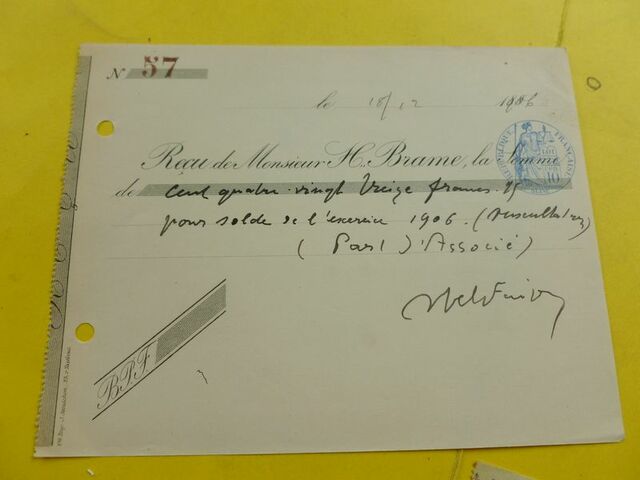 N° 57
le 18/12 1906
Reçu de Monsieur H. Brame, la somme
de cent quatre-vingt treize francs. 15
pour solde de l'exercice 1906. (
( Part d'Associé )
B.P.F.
RÉPUBLIQUE FRANÇAISE
LOI
10